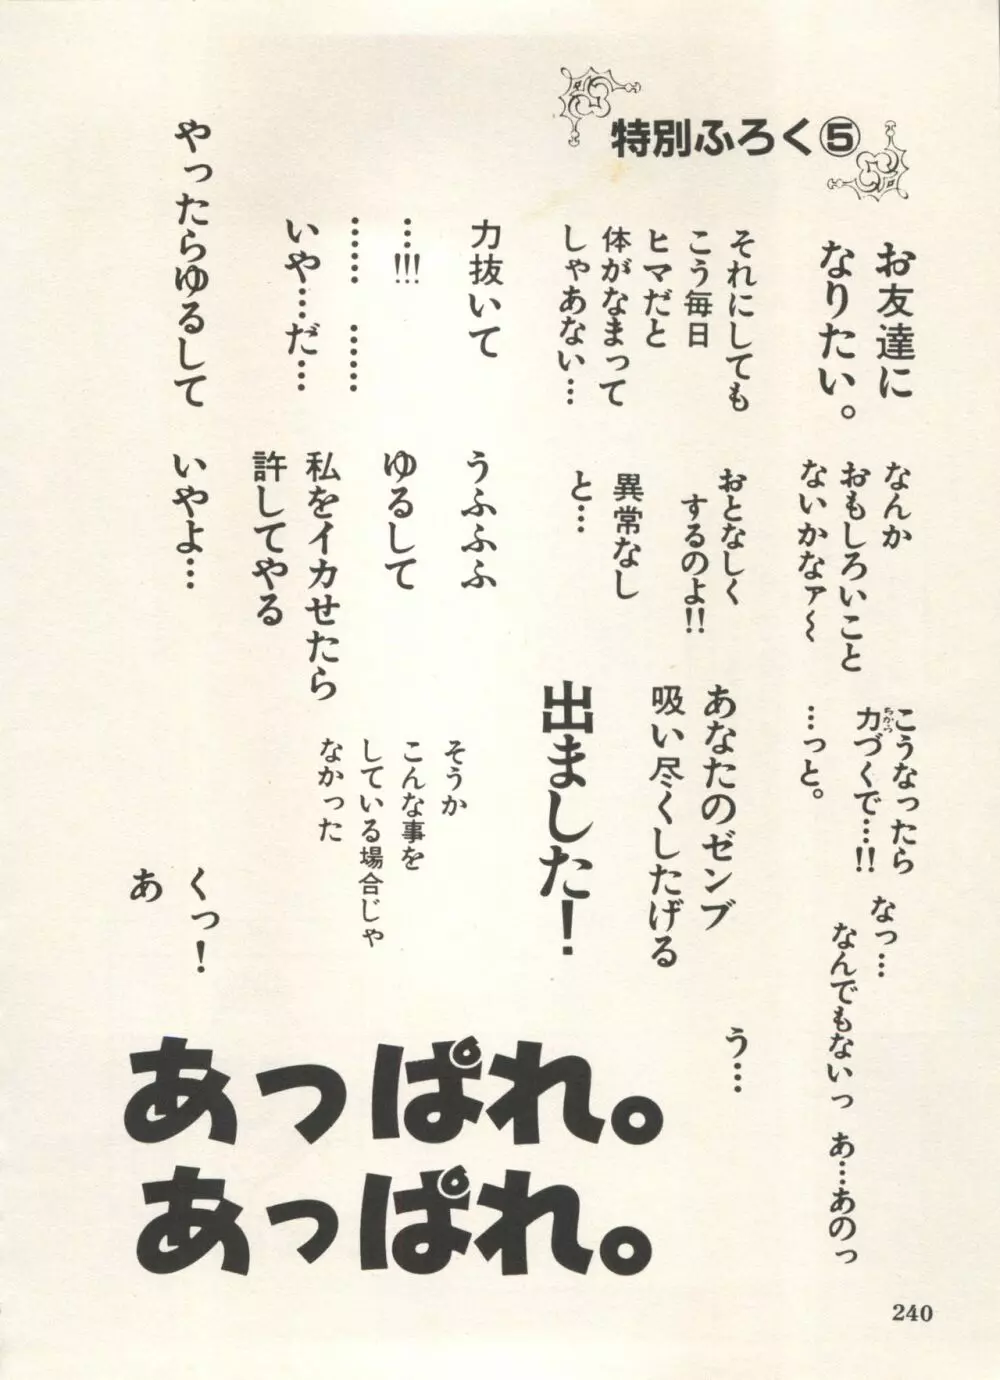 特別ふろく⑤
お友達に
なりたい。
なんか
おもしろいこと
ないかなァ〜
こうなったら
力づくで…!!
ちから
…っと。
なっ…
なんでもないっ
あ…あのっ
それにしても
こう毎日
ヒマだと
体がなまって
しゃあない…
おとなしく
するのよ!!
異常なし
と…
あなたのゼンブ
吸い尽くしたげる
う…
出ました!
力抜いて
…!!!
…… ……
いや…だ…
うふふふ
ゆるして
私をイカせたら
許してやる
そうか
こんな事を
している場合じゃ
なかった
やったらゆるして
いやよ…
くっ!
あ
あっぱれ。
あっぱれ。
240